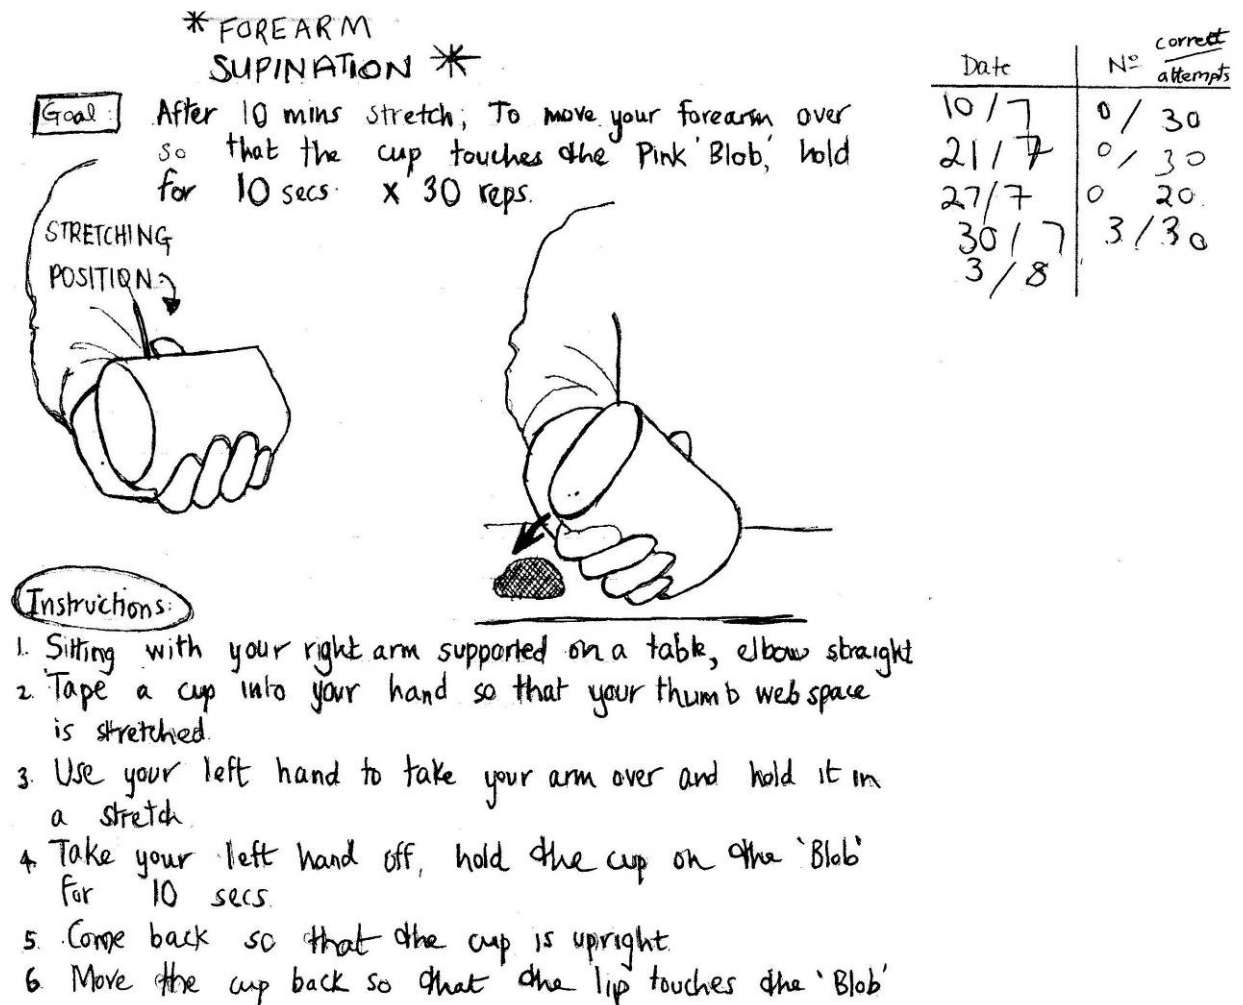 * FOREARM
SUPINATION *
Goal: After 10 mins stretch; To move your forearm over
so that the cup touches the Pink 'Blob', hold
for 10 secs. x 30 reps.
STRETCHING
POSITION
Date | Nº correct / attempts
10/7 | 0/30
21/7 | 0/30
27/7 | 0 20
30/7 | 3/30
3/8
Instructions:
1. Sitting with your right arm supported on a table, elbow straight
2. Tape a cup into your hand so that your thumb web space
is stretched.
3. Use your left hand to take your arm over and hold it in
a stretch.
4. Take your left hand off, hold the cup on the 'Blob'
for 10 secs.
5. Come back so that the cup is upright.
6. Move the cup back so that the lip touches the 'Blob'